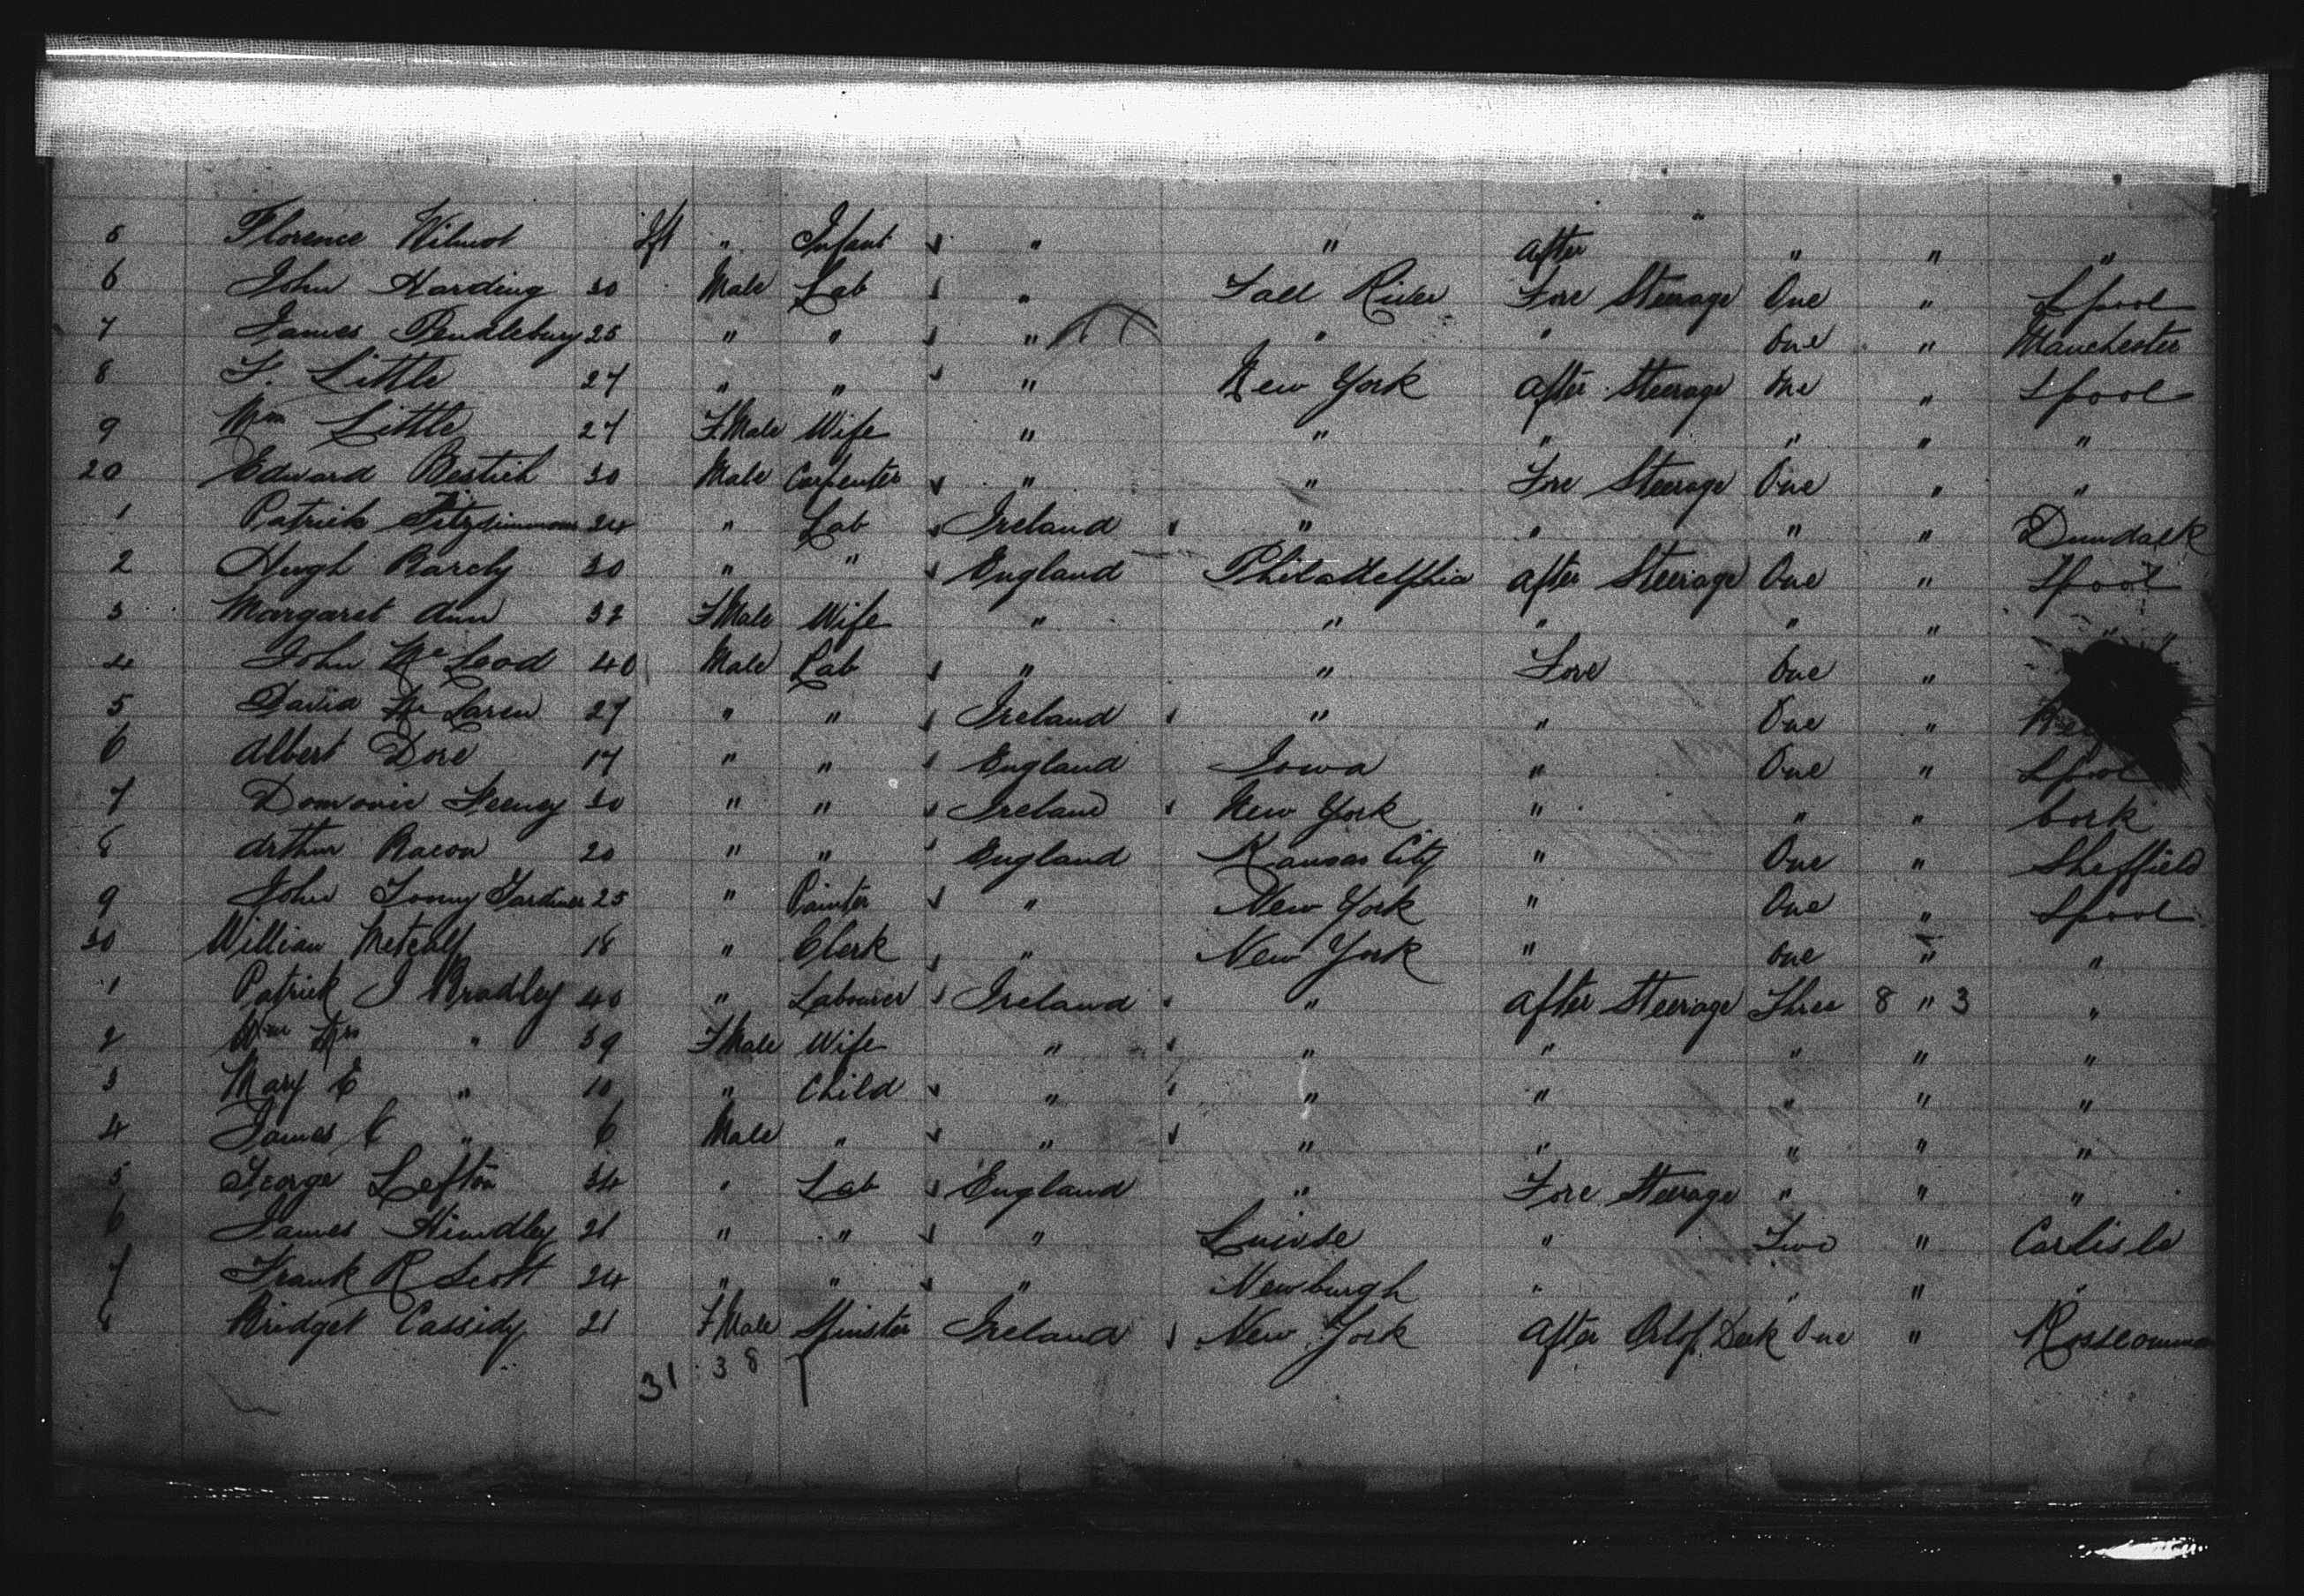 5 Florence Wilmot Ift " Infant " " After " " "
6 John Harding 30 Male Lab " Fall River Fore Steerage One " Lpool
7 James Pendlebury 25 " " " " " One " Manchester
8 F. Little 27 " " " New York After Steerage One " Lpool
9 Mrs Little 27 F.Male Wife " " " " " "
20 Edward 30 Male Carpenter " " Fore Steerage One " "
1 Patrick Fitzsimmons 24 " Lab Ireland " " " " Dundalk
2 Hugh 30 " " England Philadelphia After Steerage One " Lpool
3 Margaret Ann 32 F.Male Wife " " " " " "
4 John McLeod 40 Male Lab " " Fore One "
5 David McLaren 27 " " Ireland " " One "
6 Albert Dore 17 " " England Iowa " One " Lpool
7 Domonic Feeney 30 " " Ireland New York " " " Cork
8 Arthur Bacon 20 " " England Kansas City " One " Sheffield
9 John Gardner 25 " Painter " New York " One " Lpool
30 William Metcalf 18 " Clerk " New York " One " "
1 Patrick J Bradley 40 " Labourer Ireland " After Steerage Three 8 " 3 "
2 Mrs " 39 F.Male Wife " " " " " "
3 Mary E " 10 " Child " " " " " "
4 James " 6 Male " " " " " " "
5 George Lefton 34 " Lab England " Fore Steerage " " "
6 James Hindley 21 " " " " Two " Carlisle
7 Frank R Scott 24 " " " Newburgh " " " "
8 Bridget Cassidy 21 F.Male Spinster Ireland New York After Orlop Deck One "
31 38